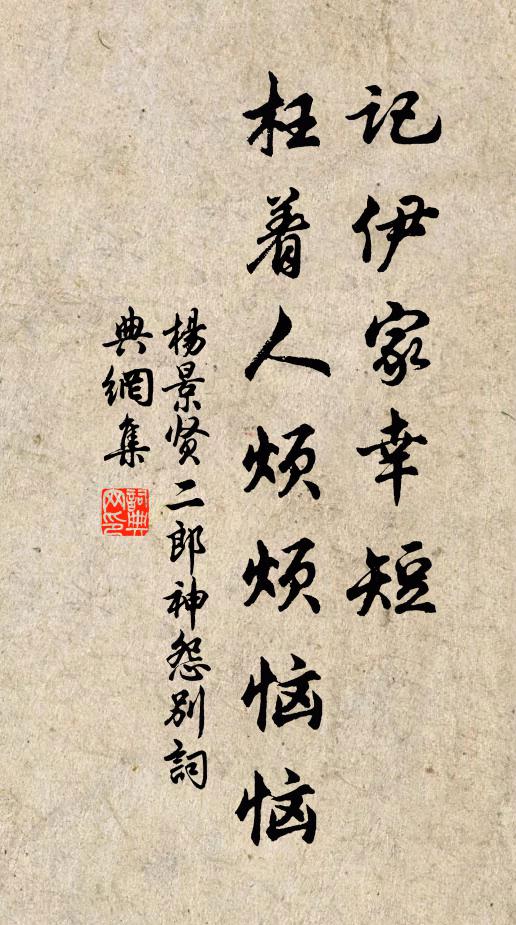 记伊家幸短
枉着人烦烦恼恼
楊景贤二郎神怨别詞
典網集
詞典网印